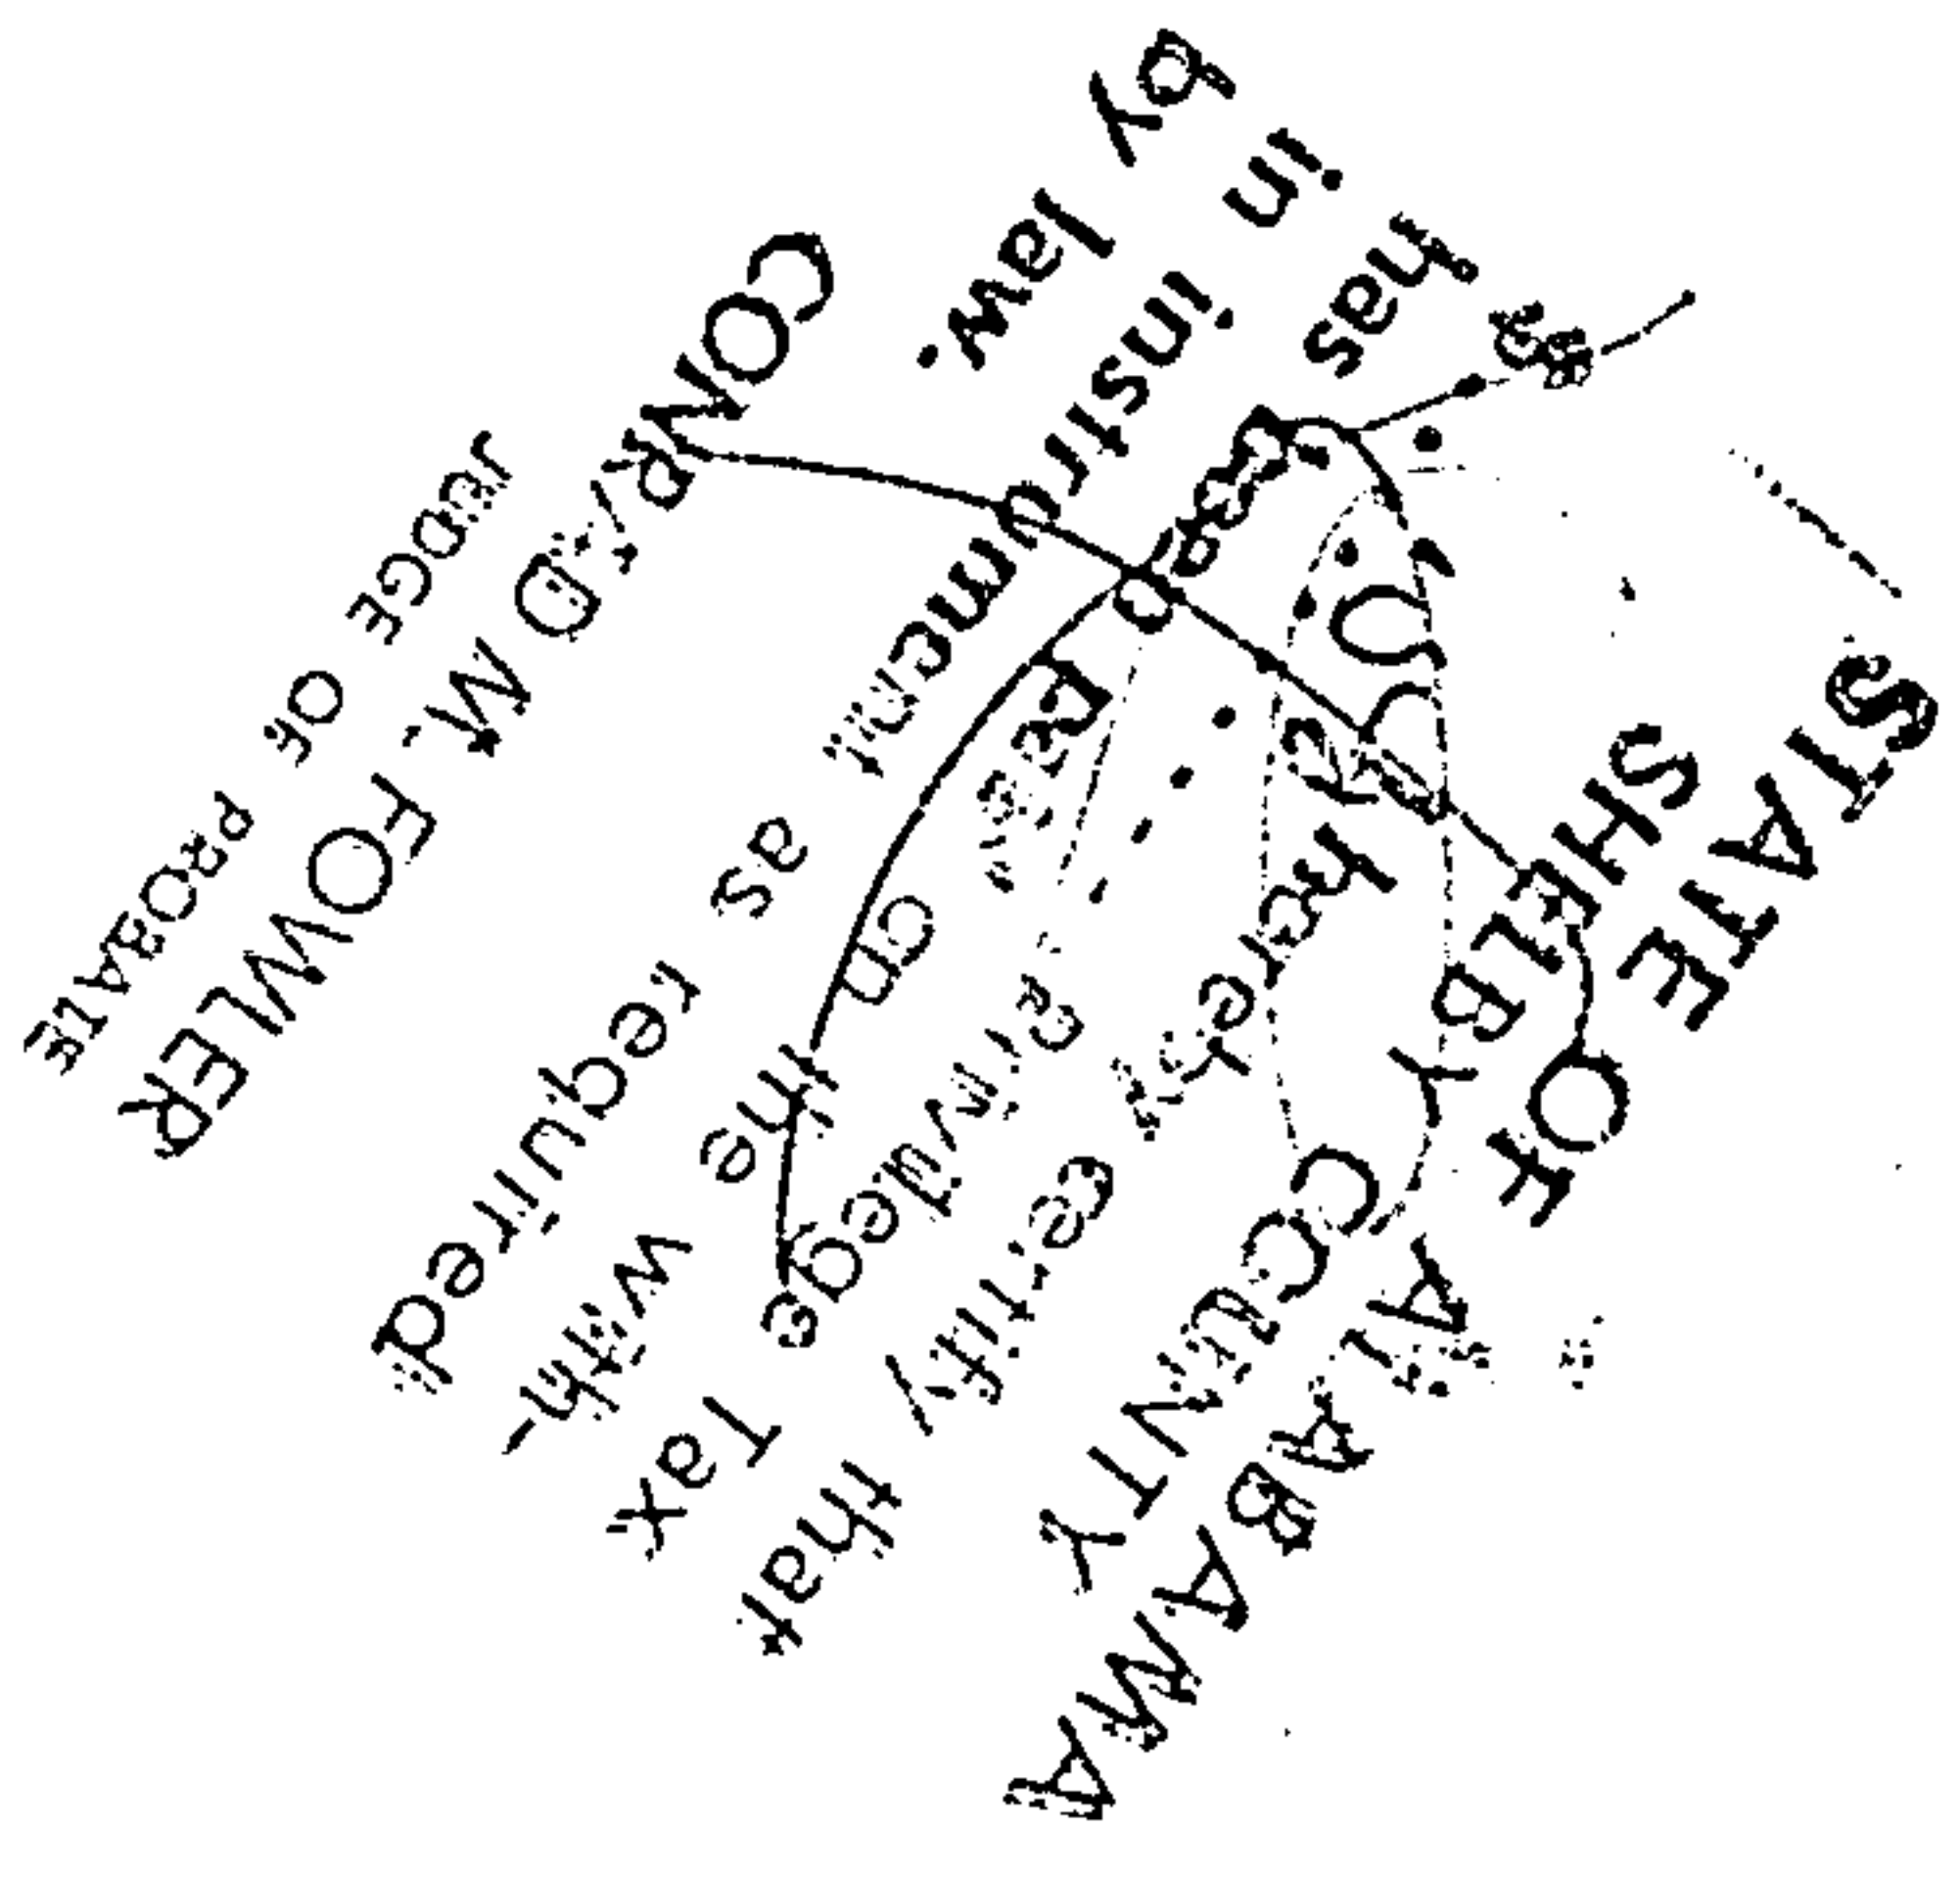 STATE OF ALABAMA
SHELBY COUNTY
hereby certify that
Privilege Tax
has been on the with-
in instrument as required
by law.
CONRAD M. FOWLER
JUDGE OF PROBATE